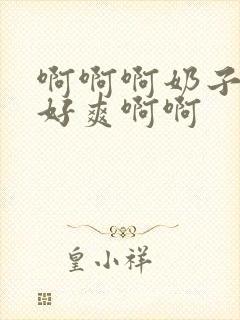 啊啊啊奶子
好爽啊啊
皇小祥